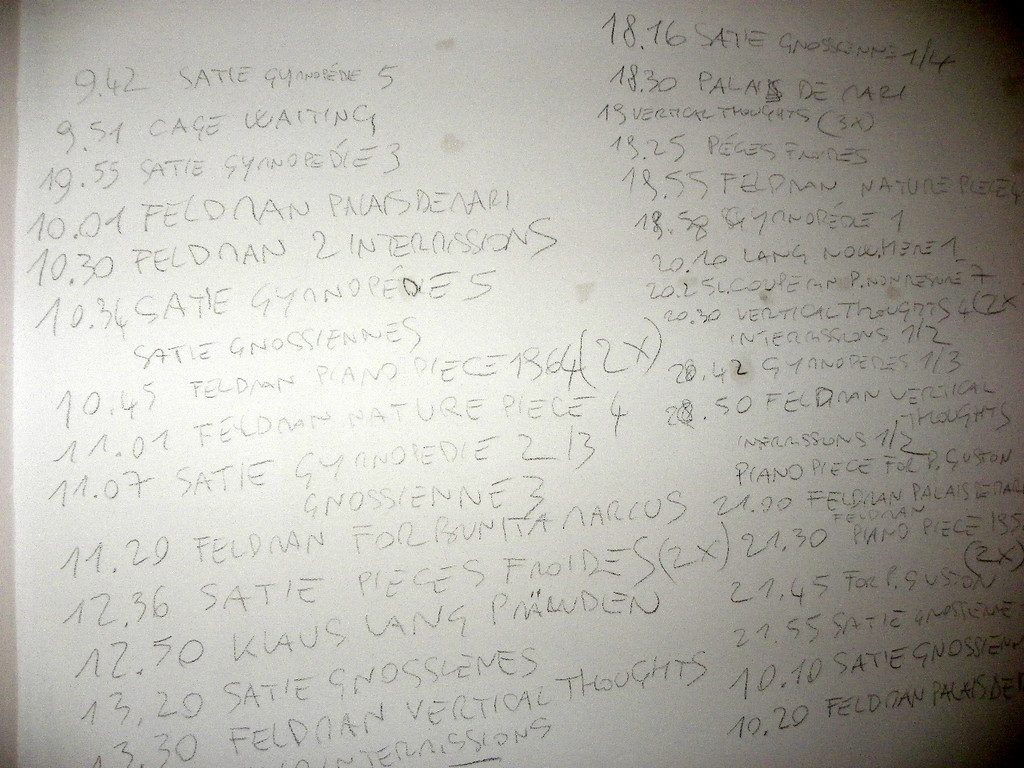 9.42 SATIE GYMNOPÉDIE 5
9.51 CAGE WAITING
19.55 SATIE GYMNOPEDIE 3
10.01 FELDMAN PALAIS DE MARI
10.30 FELDMAN 2 INTERMISSIONS
10.34 SATIE GYMNOPÉDIE 5
SATIE GNOSSIENNES
10.45 FELDMAN PIANO PIECE 1964 (2X)
11.01 FELDMAN NATURE PIECE 4
11.07 SATIE GYMNOPEDIE 2/3
GNOSSIENNE 3
11.20 FELDMAN FOR BUNITA MARCUS
12.36 SATIE PIECES FROIDES (2X)
12.50 KLAUS LANG
13.20 SATIE GNOSSIENES
13.30 FELDMAN VERTICAL THOUGHTS
INTERMISSIONS
18.16 SATIE GNOSSIENNE 1/4
18.30 PALAIS DE MARI
19 VERTICAL THOUGHTS (3X)
19.25 PÉCES FROIDES
19.55 FELDMAN NATURE PIECE
19.58 GYMNOPÉDIE 1
20.10 LANG NOWHERE 1
20.25 L. COUPERIN P. NON MESURE 7
20.30 VERTICAL THOUGHTS 4 (2X
INTERMISSIONS 1/2
20.42 GYMNOPEDIES 1/3
20.50 FELDMAN VERTICAL
THOUGHTS
INTERMISSIONS 1/2
PIANO PIECE FOR P. GUSTON
21.00 FELDMAN PALAIS DE MARI
FELDMAN
21.30 PIANO PIECE 195
(2X)
21.45 FOR P. GUSTON
21.55 SATIE GNOSSIENE
10.10 SATIE GNOSSIENN
10.20 FELDMAN PALAIS DE